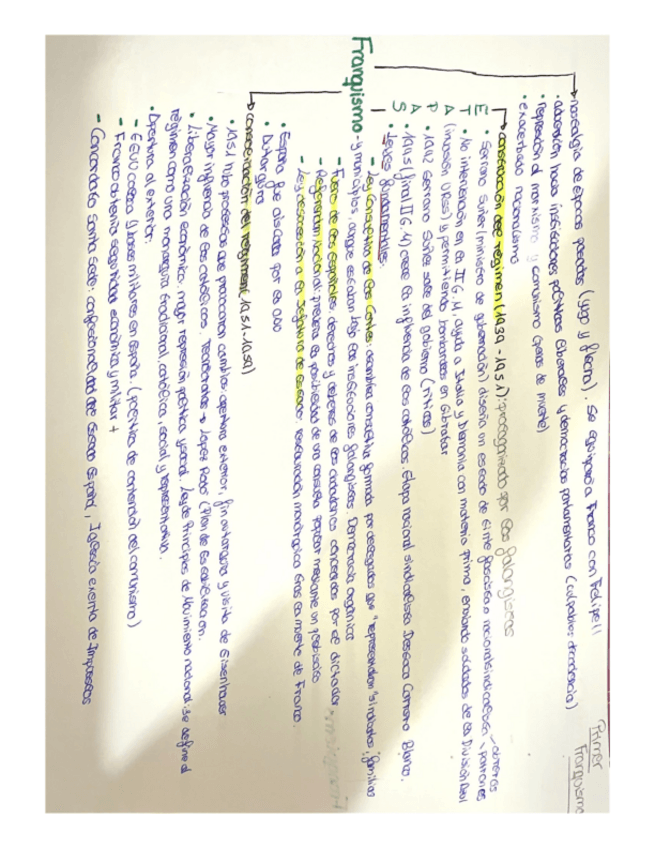 Primer
Franquismo
nostalgia de épocas pasadas (yugo y flecha). Se equipara a Franco con Felipe II
• adversión hacia instituciones políticas liberales y democracias parlamentarias (culpables decadencia)
• represión al marxismo y comunismo (penas de muerte)
• exacerbado nacionalismo
Franquismo
ETAPAS
construcción del régimen (1939-1951): protagonizado por los falangistas
• Serrano Suñer (ministro de gobernación) diseña un estado de sinte fascista o nacionalsindicalista obreros patrones
• No intervención en la II G.M, ayuda a Italia y Alemania con materia prima, enviando soldados de la División Azul
(invasión URSS) y permitiendo bombardeos en Gibraltar
• 1942 Serrano Suñer sale del gobierno (críticas)
• 1945 (final II G.M) crece la influencia de los católicos. Etapa nacional sindicalista. Destaca Carrero Blanco.
• Leyes fundamentales:
- Ley Constitutiva de las Cortes: asamblea consultiva formada por delegados que "representaban" sindicatos, familias
y municipios, aunque estaban bajo las instituciones falangistas. Democracia orgánica
- Fuero de los españoles, derechos y deberes de los ciudadanos concedidos por el dictador
- Referéndum Nacional: preveía la posibilidad de una consulta popular mediante un plebiscito
- Ley de sucesión a la Jefatura de Estado: restauración monárquica tras la muerte de Franco.
• España fue aislada por la ONU
• Autarquía
consolidación del régimen (1951-1959)
• 1951 hubo procesos que provocaron cambios: apertura exterior, fin autarquía y visita de Eisenhower
• Mayor influencia de los católicos. Tecnócratas → López Rodó (Plan de Estabilización).
• Liberalización económica, mayor represión política y social. Ley de Principios de Movimiento nacional: se define al
régimen como una monarquía tradicional, católica, social y representativa.
• Apertura al exterior:
- EEUU coloca 4 bases militares en España (política de contención del comunismo)
- Franco obtenía seguridad económica y militar +
- Concordato Santa Sede: confesionalidad del Estado Español, Iglesia exenta de Impuestos